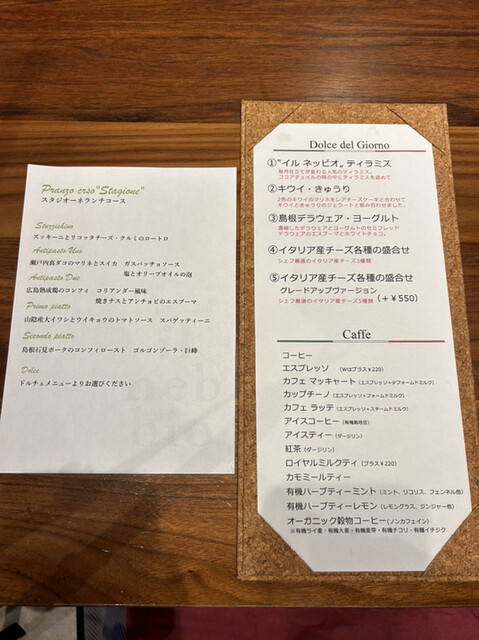 Pranzo crso "Stagione"
スタジオーネランチコース
Stuzzichino
ズッキーニとリコッタチーズ・クルミのロートロ
Antipasto Uno
瀬戸内真ダコのマリネとスイカ ガスパッチョソース
塩とオリーブオイルの泡
Antipasto Due
広島熟成鶏のコンフィ コリアンダー風味
焼きナスとアンチョビのエスプーマ
Primo piatto
山陰産大イワシとウイキョウのトマトソース スパゲッティーニ
Secondo piatto
島根石見ポークのコンフィロースト ゴルゴンゾーラ・巨峰
Dolce
ドルチェメニューよりお選びください
Dolce del Giorno
①"イル ネッビオ„ ティラミス
毎月仕立てが変わる人気のティラミス。
ココアチュイルの筒の中にティラミスを詰めて
②キウイ・きゅうり
2色のキウイのマリネをレアチーズケーキと合わせて
キウイときゅうりのジェラートと組み合わせました。
③島根デラウェア・ヨーグルト
濃縮したデラウェアとヨーグルトのセミフレッド
デラウェアのエスプーマとホワイトチョコ。
④イタリア産チーズ各種の盛合せ
シェフ厳選のイタリア産チーズ3種類
⑤イタリア産チーズ各種の盛合せ
グレードアップヴァージョン
シェフ厳選のイタリア産チーズ5種類 (+¥550)
Caffe
コーヒー
エスプレッソ (Wはプラス¥220)
カフェ マッキャート (エスプレッソ+少フォームドミルク)
カップチーノ (エスプレッソ+フォームドミルク)
カフェ ラッテ (エスプレッソ+スチームドミルク)
アイスコーヒー (有機栽培豆)
アイスティー (ダージリン)
紅茶 (ダージリン)
ロイヤルミルクティ (プラス¥220)
カモミールティー
有機ハーブティーミント (ミント、リコリス、フェンネル他)
有機ハーブティーレモン (レモングラス、ジンジャー他)
オーガニック穀物コーヒー(ノンカフェイン)
※有機ライ麦・有機大麦・有機麦芽・有機チコリ・有機イチジク